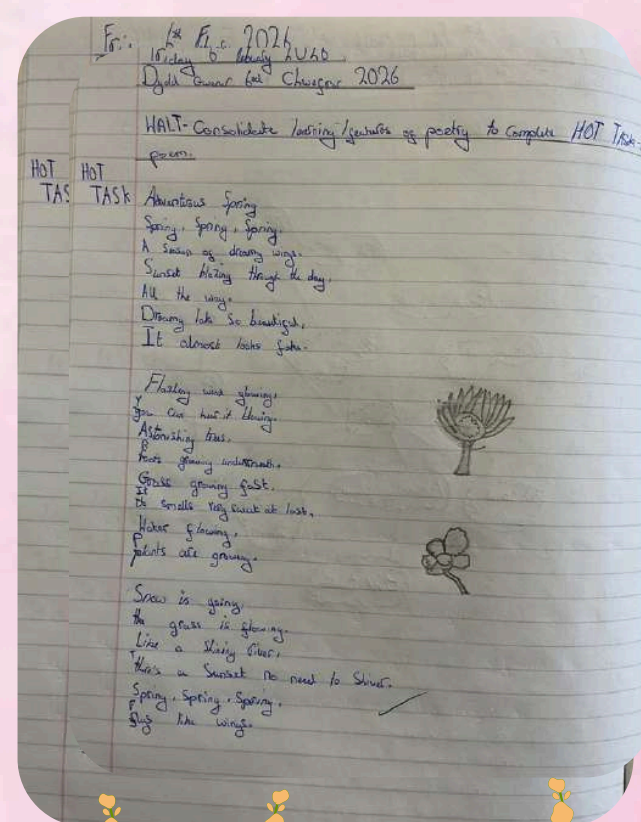 6th 2026
Friday 6th February 2026
Dydd Gwener 6ed Chwefror 2026
WALT- Consolidate learning/features of poetry to Complete HOT Task-
poem.
HOT HOT
TAS TASK
Adventurous Spring
Spring, Spring, Spring.
A Season of dreamy wings.
Sunset blazing through the day,
All the way.
Dreamy lake so beautiful,
It almost looks fake.
wind glowing,
You can hear it blowing.
Astonishing trees,
Roots growing underneath.
Grass growing fast.
It smells very sweet at last.
Water flowing,
plants are growing.
Snow is going,
the grass is glowing.
Like a Shining river,
theres a Sunset no need to Shiver.
Spring, Spring, Spring,
like wings.